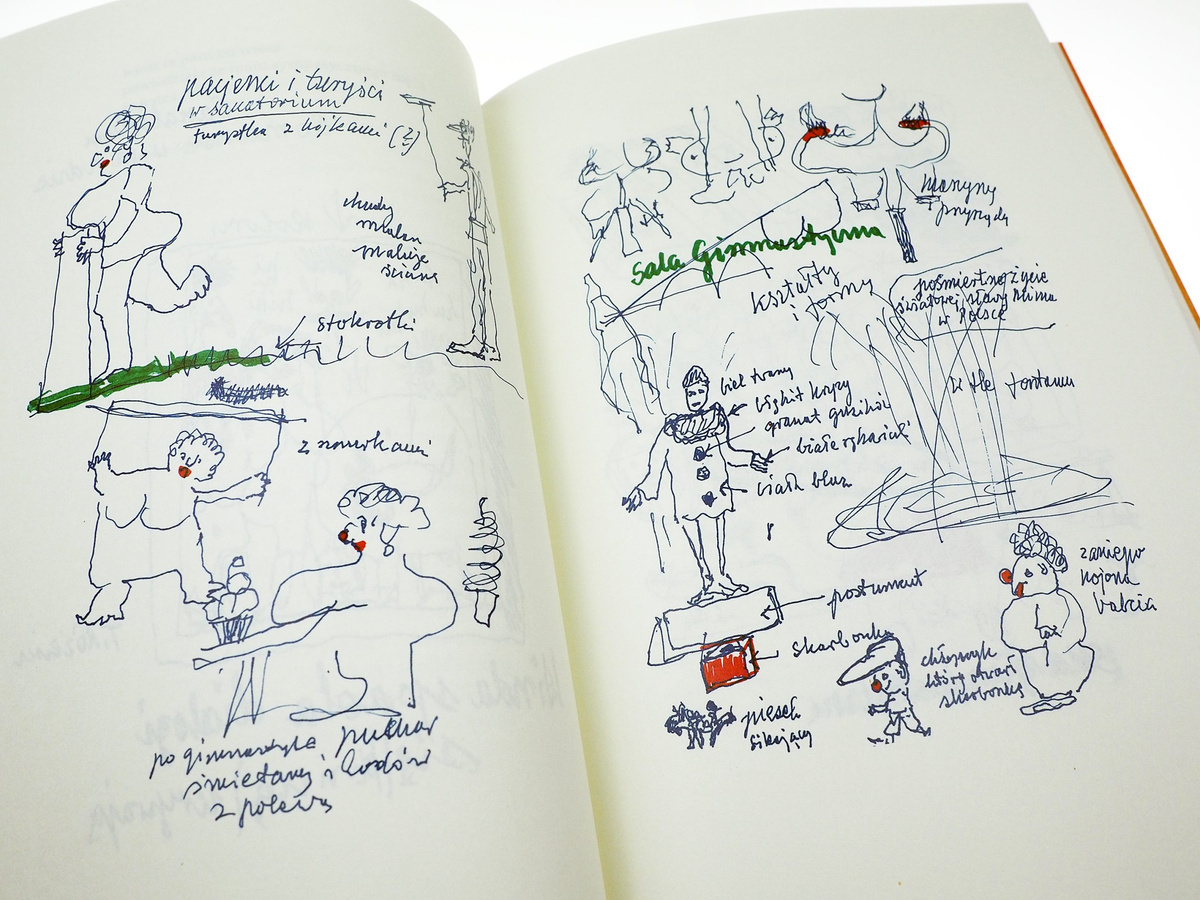 pacjenci i turyści
w sanatorium
turystka z kijkami (2)
chudy
malarz
maluje
ścianę
stokrotki
z
po gimnastyce puchar
śmietany i lodów
z polewą
maszyny
i przyrządy
Sala Gimnastyczna
kształty
i formy
pośmiertne życie
światowej sławy Mima
w Polsce
w tle fontanna
biel twarzy
błękit kryzy
granat guzików
białe rękawiczki
biała bluza
postument
skarbonka
zaniepo
kojona
babcia
chłopczyk
który otwarł
skarbonkę
piesek
sikający